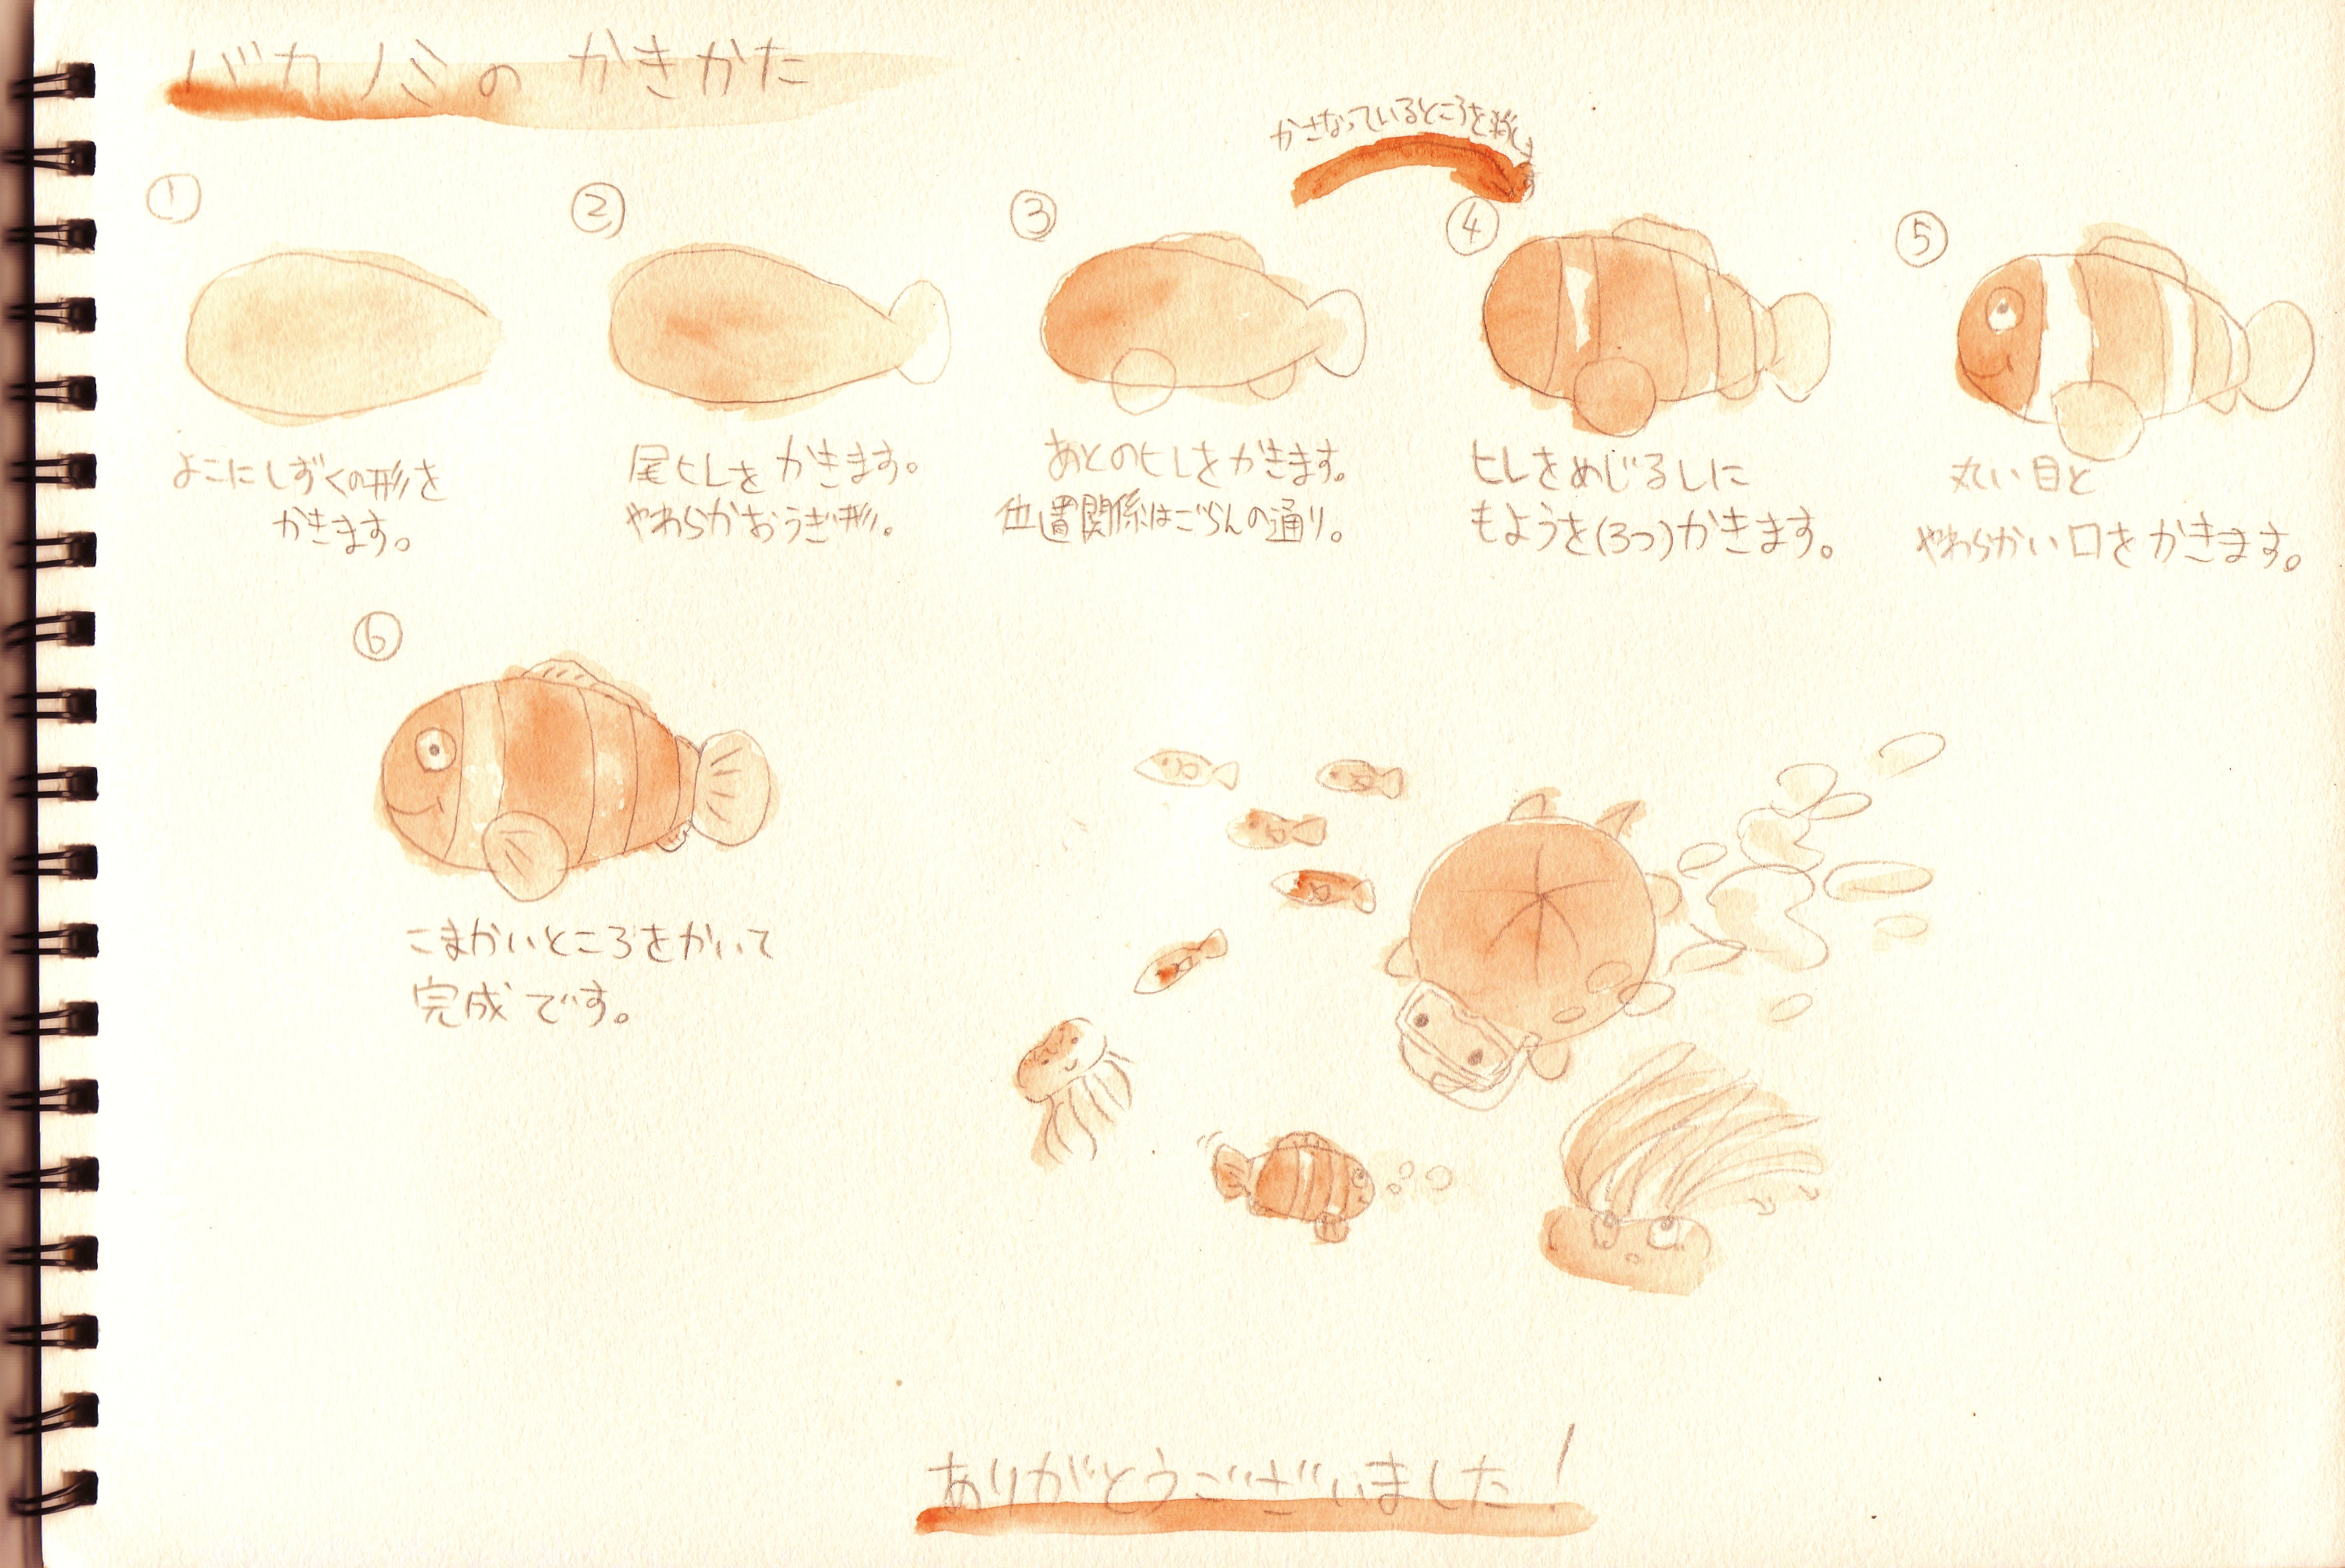 バカノミのかきかた
①
よこにしずくの形を
かきます。
②
尾ヒレをかきます。
やわらかおうぎ形。
③
あとのヒレをかきます。
位置関係はごらんの通り。
かさなっているところを消します
④
ヒレをめじるしに
もようを(3つ)かきます。
⑤
丸い目と
やわらかい口をかきます。
⑥
こまかいところをかいて
完成です。
ありがとうございました!